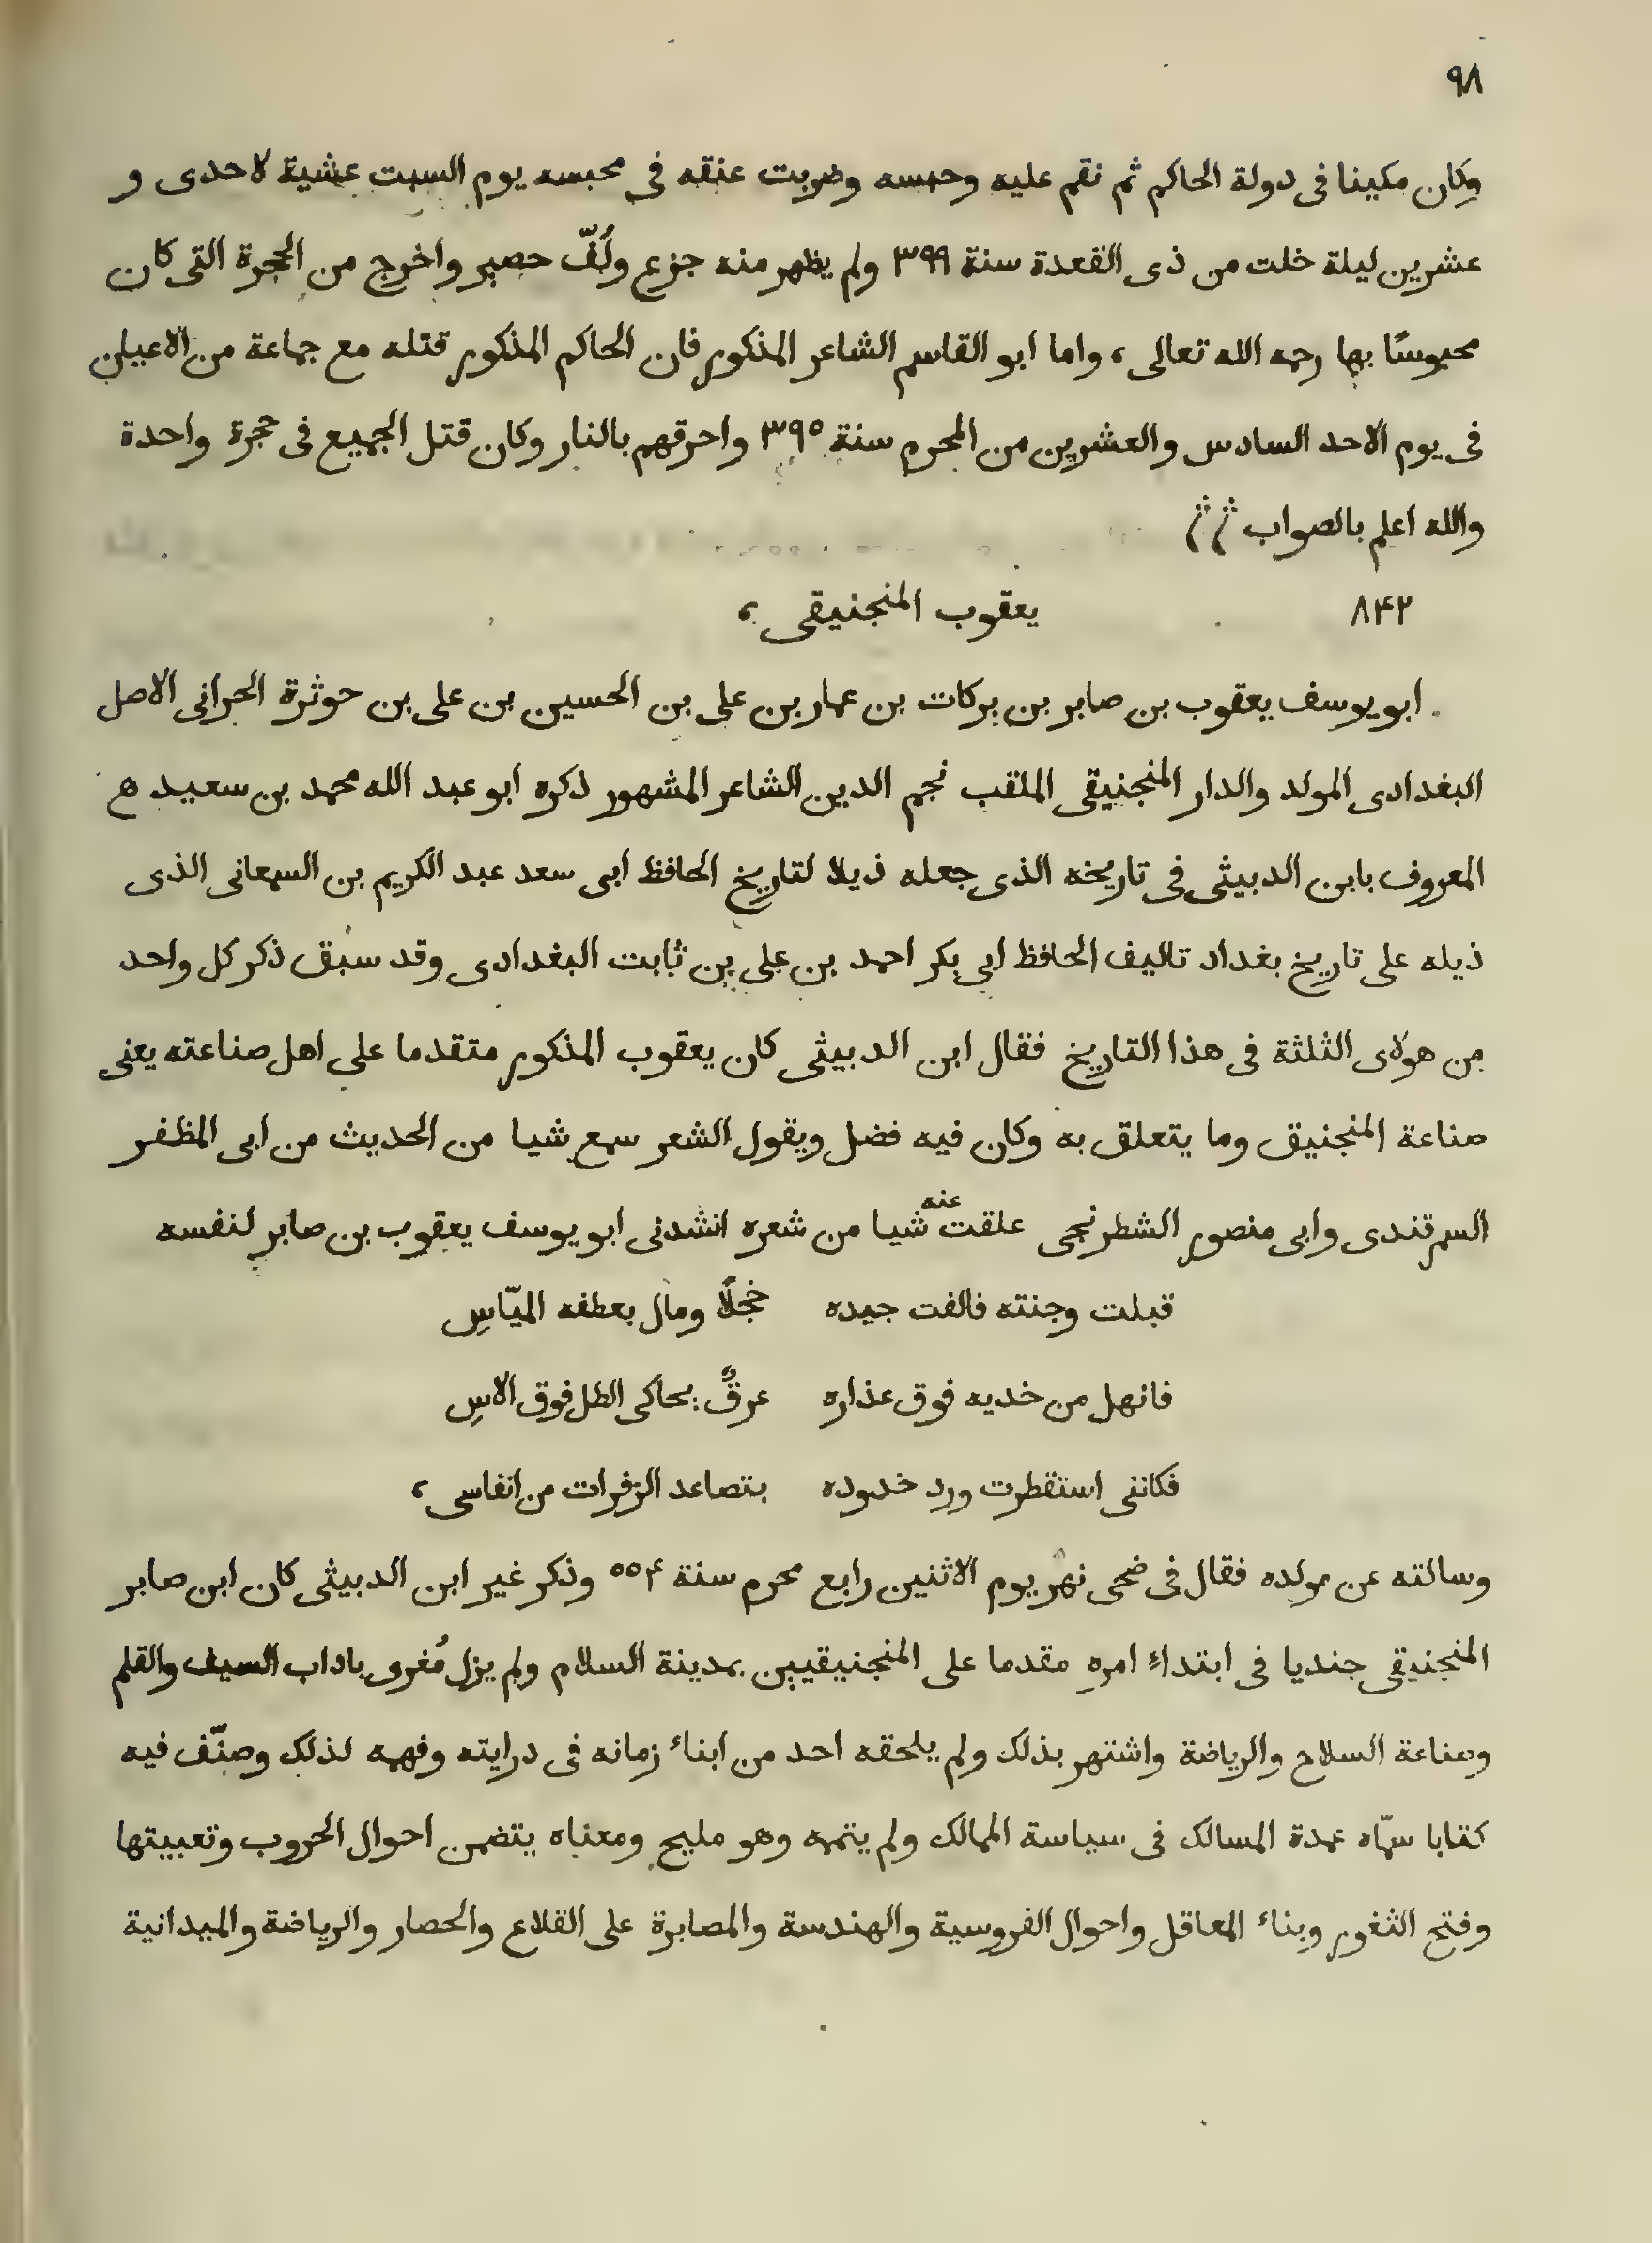 ٩٨
وكان مكينا فى دولة الحاكم ثم نقم عليه وحبسه وضربت عنقه فى محبسه يوم السبت عشية لاحدى و
عشرين ليلة خلت من ذى القعدة سنة ٣٩٩ ولم يظهر منه جزع ولُفّ حصير واخرج من الحجرة التى كان
محبوسًا بها رحمه الله تعالى، واما ابو القاسم الشاعر المذكور فان الحاكم المذكور قتله مع جماعة من الاعيان
فى يوم الاحد السادس والعشرين من المحرم سنة ٣٩٥ واحرقهم بالنار وكان قتل الجميع فى حجرة واحدة
والله اعلم بالصواب
٨٤٢ يعقوب المنجنيقى،
ابو يوسف يعقوب بن صابر بن بركات بن عمار بن على بن الحسين بن على بن حوثرة الحرانى الاصل
البغدادى المولد والدار المنجنيقى الملقب نجم الدين الشاعر المشهور ذكره ابو عبد الله محمد بن سعيد
المعروف بابن الدبيثى فى تاريخه الذى جعله ذيلا لتاريخ الحافظ ابى سعد عبد الكريم بن السمعانى الذى
ذيله على تاريخ بغداد تاليف الحافظ ابى بكر احمد بن على بن ثابت البغدادى وقد سبق ذكر كل واحد
من هولاى الثلثة فى هذا التاريخ فقال ابن الدبيثى كان يعقوب المذكور متقدما على اهل صناعته يعنى
صناعة المنجنيق وما يتعلق به وكان فيه فضل ويقول الشعر سمع شيا من الحديث من ابى المظفر
السمرقندى وابى منصور الشطرنجى علقت عنه شيا من شعره انشدنى ابو يوسف يعقوب بن صابر لنفسه
قبلت وجنته فالفت جيده خجلًا ومال بعطفه الميّاسِ
فانهل من خديه فوق عذاره عرقٌ يحاكى الطل فوق الاسِ
فكاننى استقطرت ورد خدوده بتصاعد الزفرات من انفاسى،
وسالته عن مولده فقال فى ضحى نهار يوم الاثنين رابع محرم سنة ٥٥٤ وذكر غير ابن الدبيثى كان ابن صابر
المنجنيقى جنديا فى ابتداءِ امرهِ مقدما على المنجنيقيين بمدينة السلام ولم يزل مُغرى باداب السيف والقلم
وصناعة السلاح والرياضة واشتهر بذلك ولم يلحقه احد من ابناء زمانه فى درايته وفهمه لذلك وصنّف فيه
كتابا سمّاه عمدة المسالك فى سياسة الممالك ولم يتمه وهو مليح ومعناه يتضمن احوال الحروب وتعبيتها
وفتح الثغور وبناء المعاقل واحوال الفروسية والهندسة والمصابرة على القلاع والحصار والرياضة والميدانية